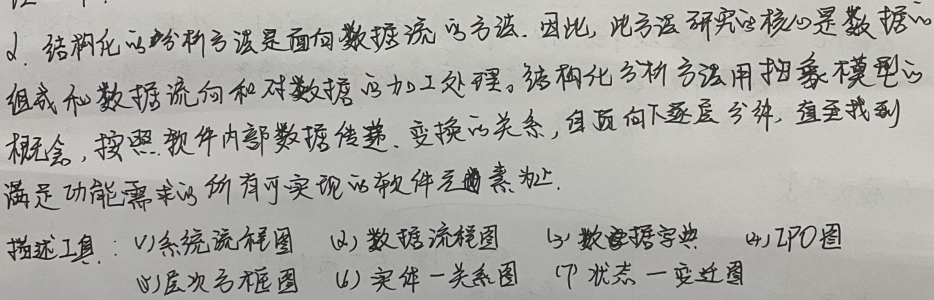 2. 结构化的分析方法是面向数据流的方法. 因此, 此方法研究的核心是数据的
组成和数据流向和对数据的加工处理。结构化分析方法用抽象模型的
概念, 按照软件内部数据传递、变换的关系, 自顶向下逐层分解, 直至找到
满足功能需求的所有可实现的软件元素为止.
描述工具: (1)系统流程图 (2)数据流程图 (3)数据字典 (4)IPO图
(5)层次方框图 (6)实体一关系图 (7)状态一变迁图